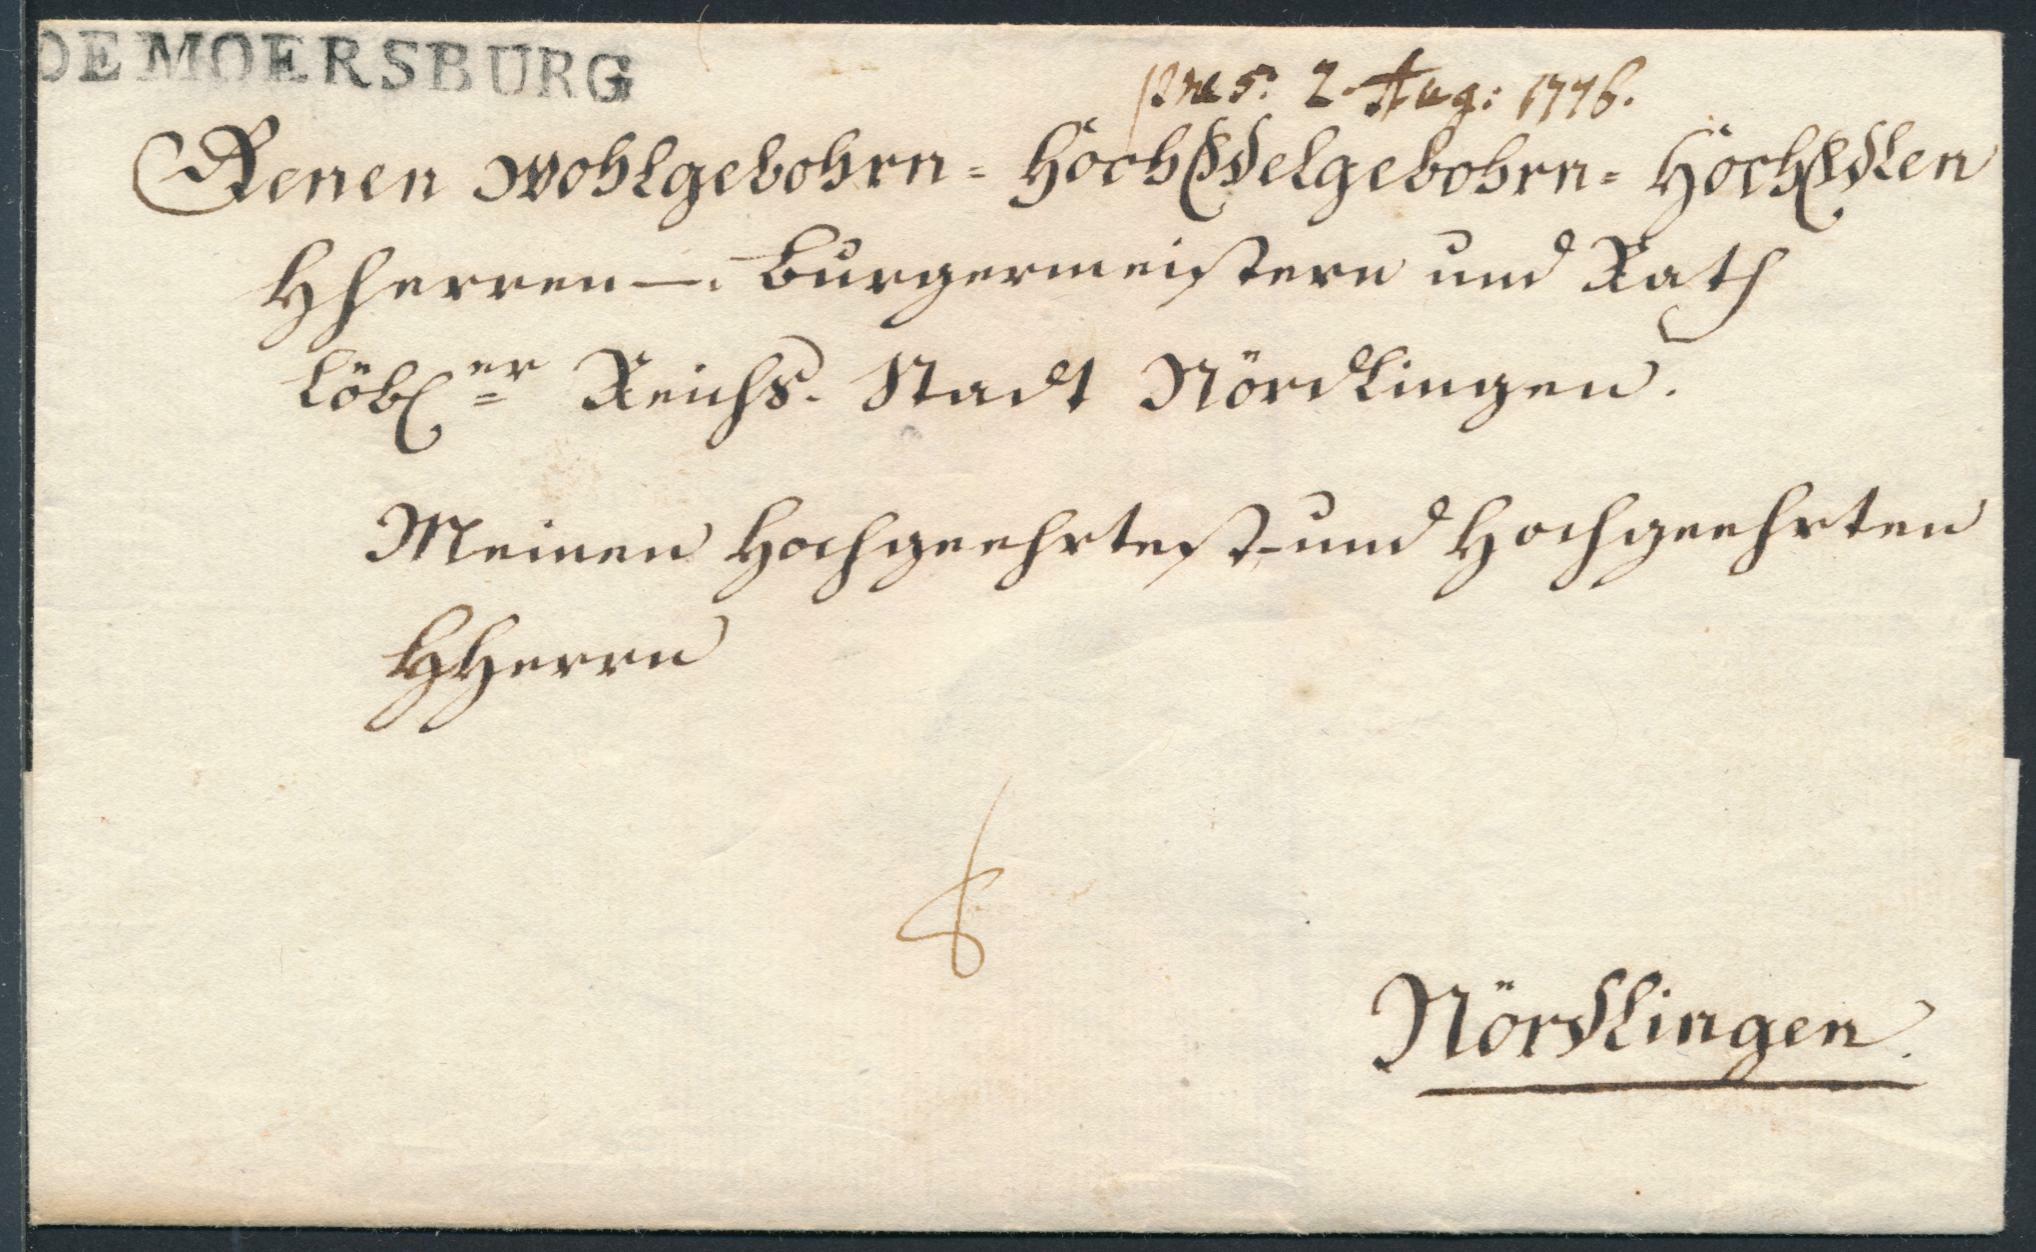 DE MOERSBURG
præs. 2. Aug: 1776.
Denen Wohlgebohrn- HochEdelgebohrn- HochEdlen
HHerren Burgermeistern und Rath
löbl.er Reichs-Stadt Nördlingen.
Meinen Hochgeehrtest- und Hochgeehrten
HHerrn
8
Nördlingen.